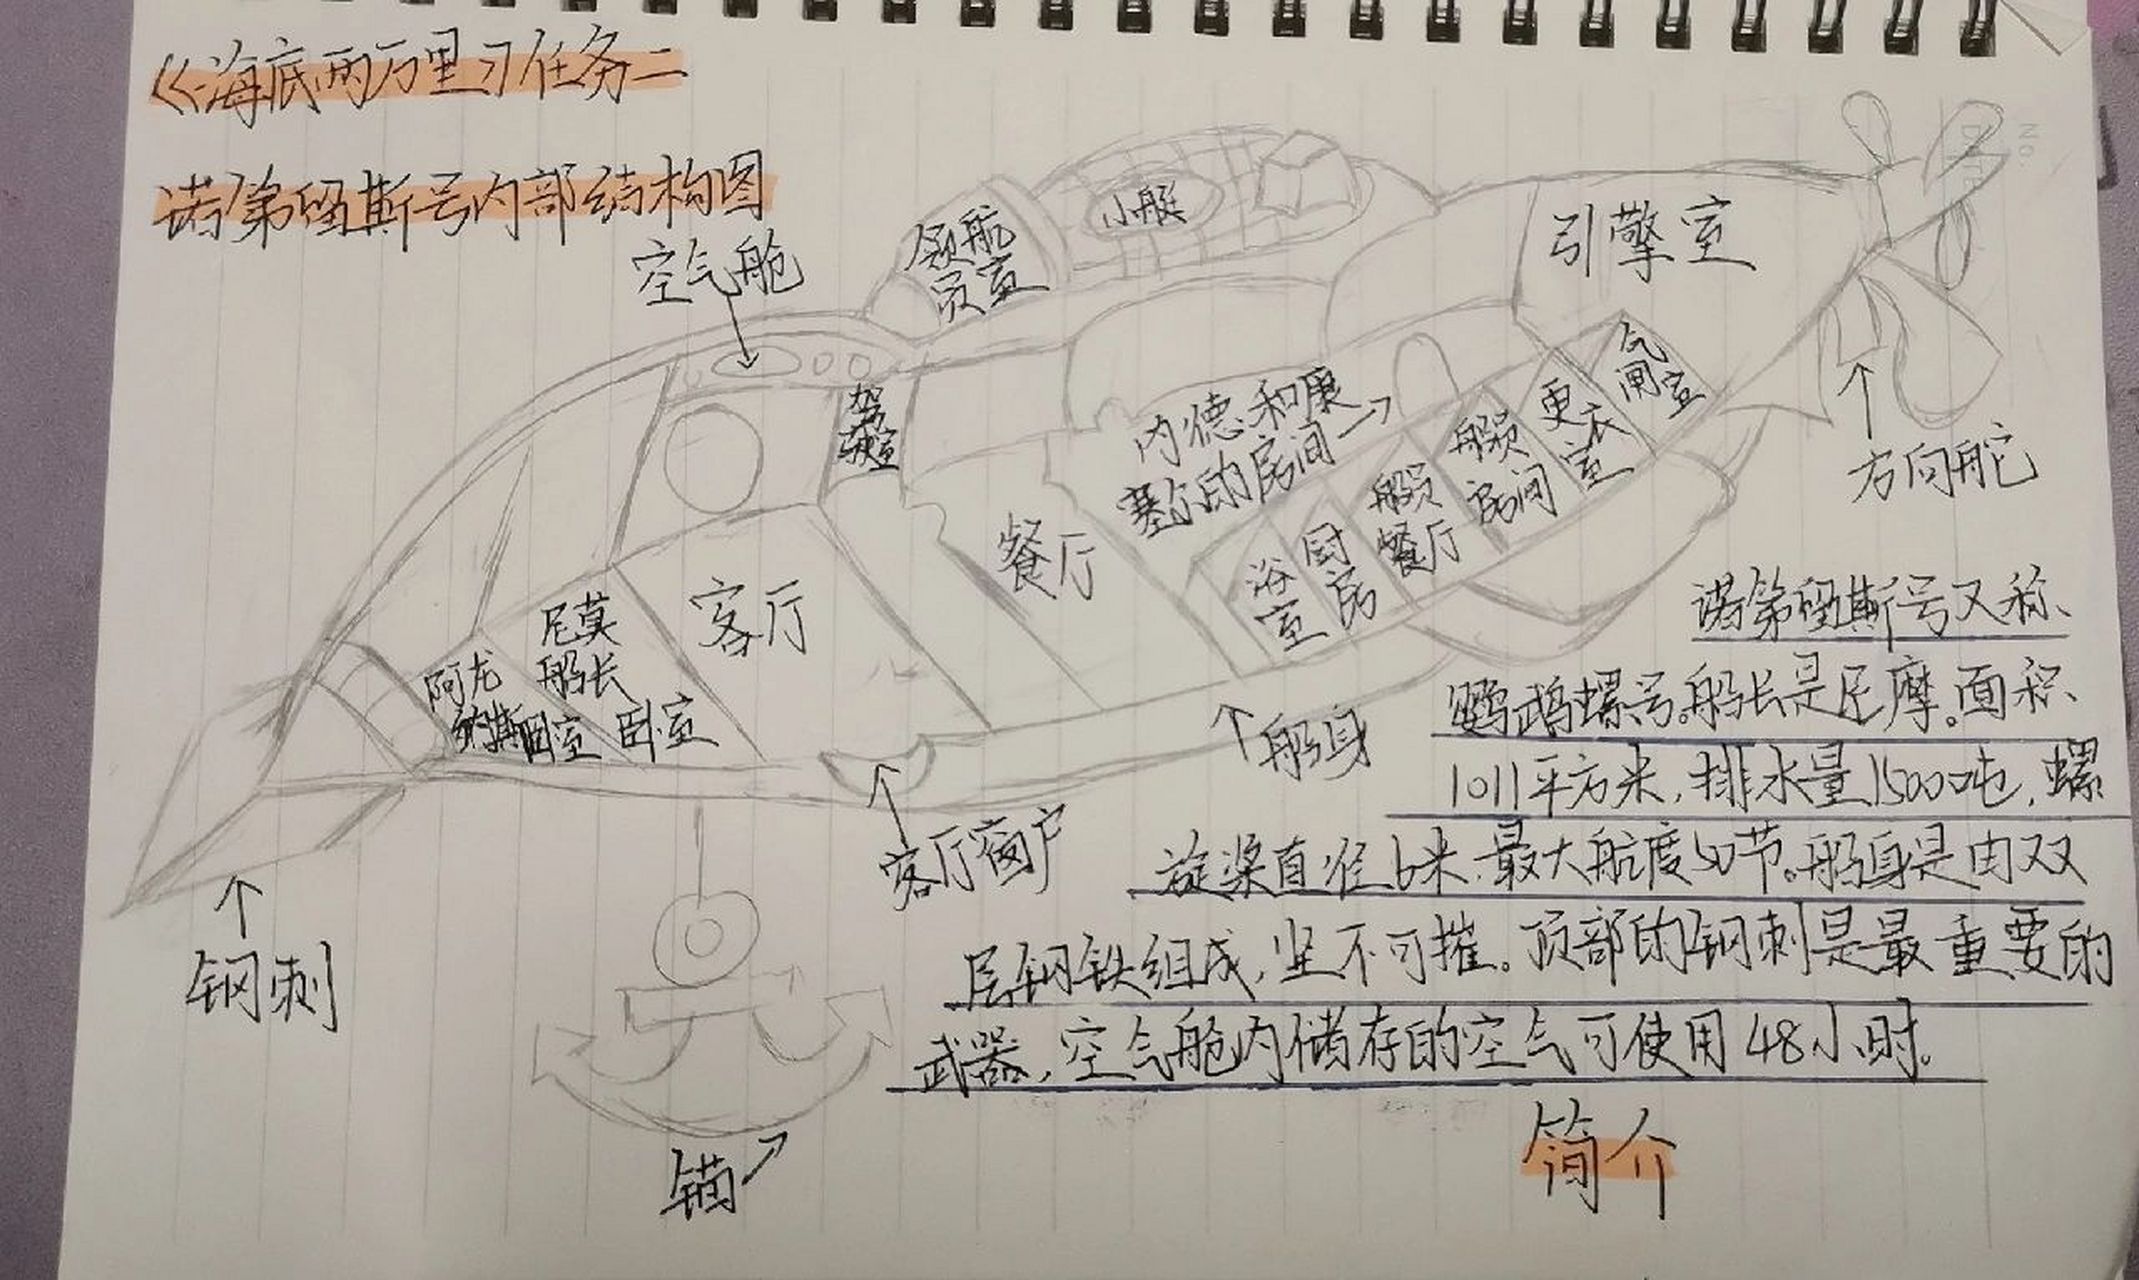 《海底两万里》任务二
诺第留斯号内部结构图
空气舱
领航
员室
小艇
引擎室
驾
驶室
气
闸室
更衣
室
船员
房间
船员
餐厅
厨
房
浴
室
内德和康
塞尔的房间
方向舵
餐厅
客厅
尼莫
船长
卧室
阿龙
纳斯卧室
船身
客厅窗户
钢刺
锚
诺第留斯号又称
鹦鹉螺号。船长是尼摩。面积
1011平方米,排水量1500吨,螺
旋桨直径6米.最大航度50节。船身是由双
层钢铁组成,坚不可摧。顶部的钢刺是最重要的
武器,空气舱内储存的空气可使用48小时。
简介